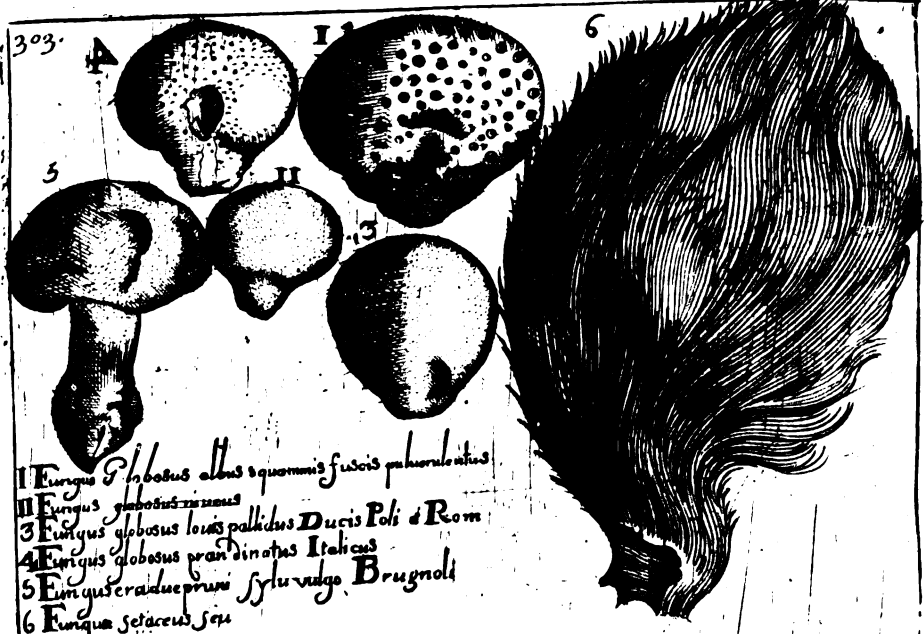 303.
4 I 6
5 II
3
I Fungus Globosus albus squammis fuscis pulverulentus
II Fungus globosus niveus
3 Fungus globosus pallidus Ducis Poli d Rom
4 Fungus globosus grandinotus Italicus
5 Fungus sylv vulgo Brugnoli
6 Fungus setaceus seu